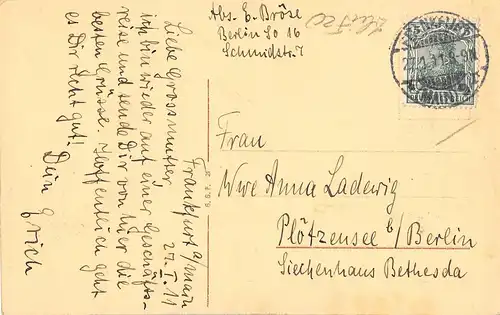 Frankfurt a/Main
27. I. 11
Liebe Grossmutter
ich bin wieder auf einer Geschäfts-
reise und sende Dir von hier die
besten Grüsse. Hoffentlich geht
es Dir recht gut!
Dein
Erich
Abs. E. Bröse
Berlin SO 16
Schmidstr. 7
Frau
Wwe Anna Ladewig
Plötzensee b/Berlin
Siechenhaus Bethesda